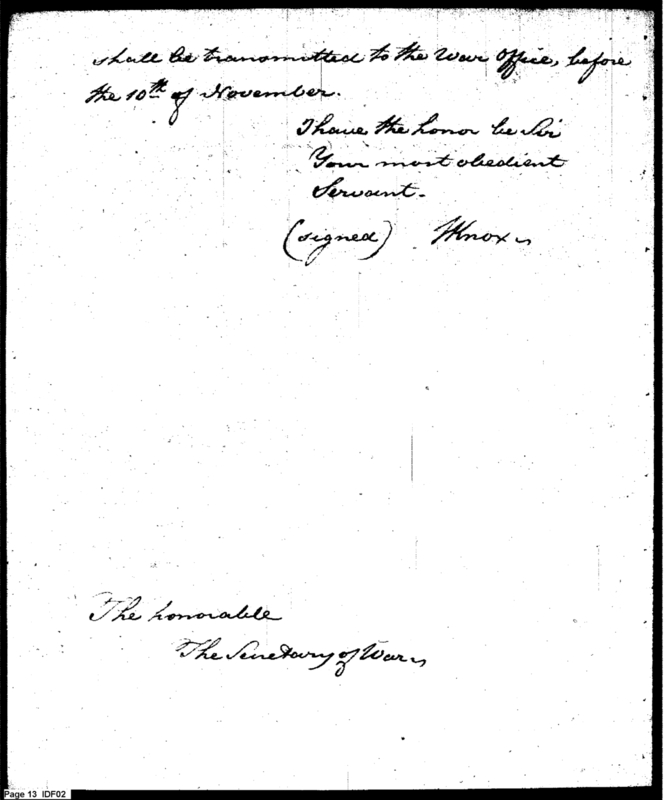 shall be transmitted to the War Office, before
the 10th of November.
I have the honor be Sir
Your most obedient
Servant.
(signed) HKnox
The honorable
The Secretary of War
Page 13 IDF02